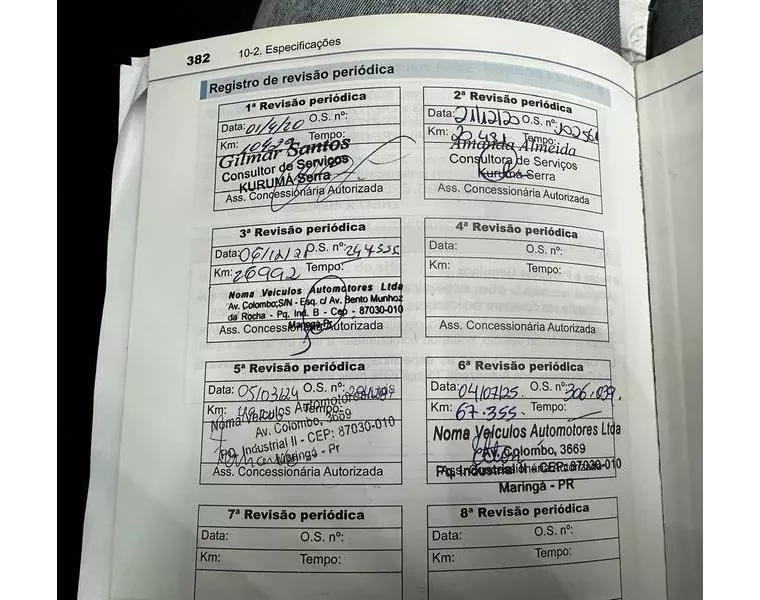 382 10-2. Especificações
Registro de revisão periódica
1ª Revisão periódica
Data: 01/9/20 O.S. nº:
Km: Tempo:
Gilmar Santos
Consultor de Serviços
KURUMÁ Serra
Ass. Concessionária Autorizada
2ª Revisão periódica
Data: 21/12/20 O.S. nº:
Km: Tempo:
Amanda Almeida
Consultora de Serviços
Kurumá Serra
Ass. Concessionária Autorizada
3ª Revisão periódica
Data: 06/12/21 O.S. nº: 244355
Km: 26992 Tempo:
Noma Veículos Automotores Ltda
Av. Colombo,S/N - Esq. c/ Av. Bento Munhoz
da Rocha - Pq. Ind. B - Cep - 87030-010
Maringá-Pr
Ass. Concessionária Autorizada
4ª Revisão periódica
Data: O.S. nº:
Km: Tempo:
Ass. Concessionária Autorizada
5ª Revisão periódica
Data: 05/03/24 O.S. nº:
Km: Tempo:
Noma Veículos Automotores Ltda
Av. Colombo, 3669
PQ. Industrial II - CEP: 87030-010
Maringá - Pr
Ass. Concessionária Autorizada
6ª Revisão periódica
Data: 04/07/25 O.S. nº: 306.039.
Km: 67.355. Tempo:
Noma Veículos Automotores Ltda
AV. Colombo, 3669
Pq. Industrial II - CEP: 87030-010
Ass. Concessionária Autorizada
Maringá - PR
7ª Revisão periódica
Data: O.S. nº:
Km: Tempo:
8ª Revisão periódica
Data: O.S. nº:
Km: Tempo: